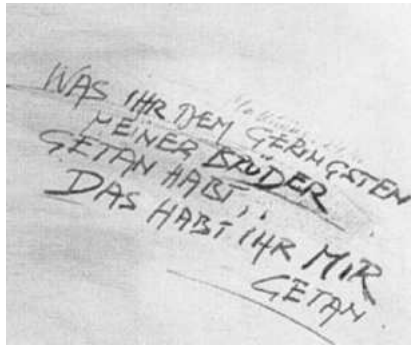 WAS IHR DEM GERINGSTEN
MEINER BRÜDER
GETAN HABT,
DAS HABT IHR MIR
GETAN